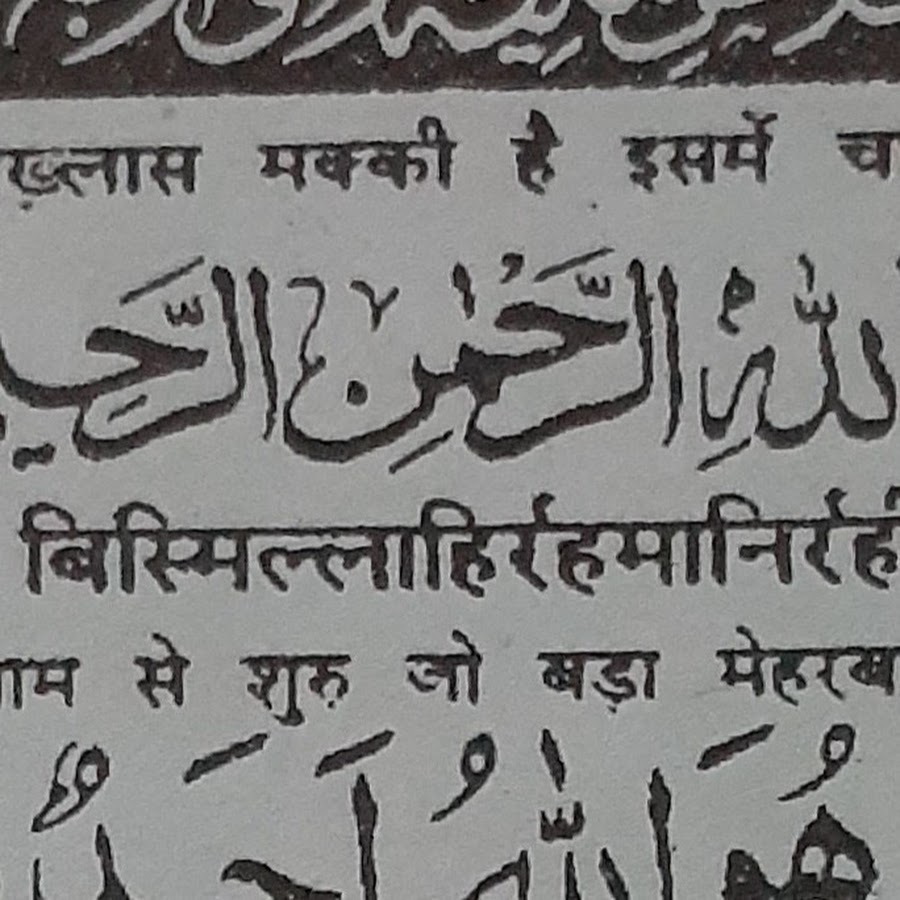 ख़्लास मक्की है इसमें च
للّٰهِ الرَّحْمٰنِ الرَّحِي
बिस्मिल्लाहिर्रहमानिर्रही
ाम से शुरु जो बड़ा मेहरब
هُوَ اللّٰهُ اَحَدٌ